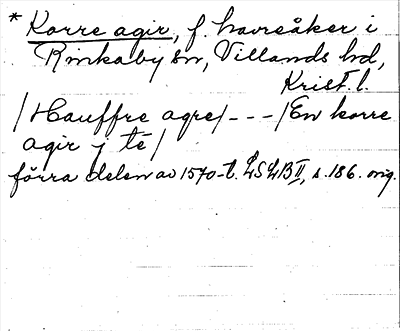 * Korre agir, f. havreåker i
Rinkaby sn, Villands hd,
Krist. l.
/Hauffre agre/ - - - /En korre
agir j te/
förra delen av 1570-t. LSLB II, s. 186. orig.